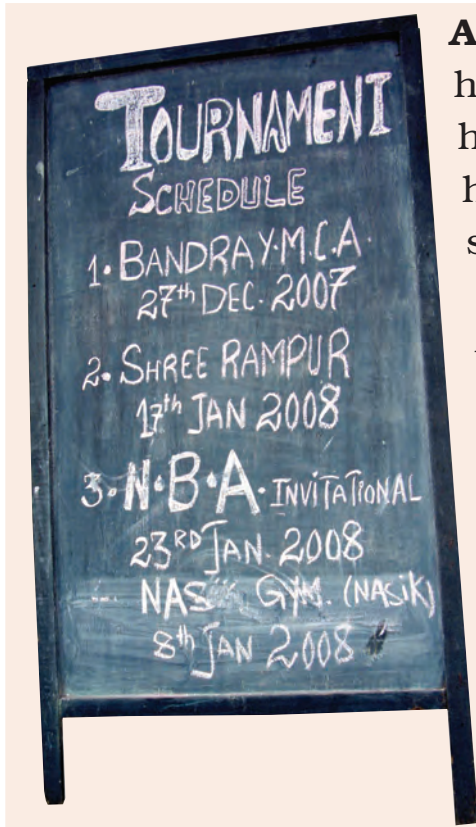 TOURNAMENT
SCHEDULE
1. BANDRA Y.M.C.A.
27th DEC. 2007
2. SHREE RAMPUR
17th JAN 2008
3. N.B.A. INVITATIONAL
23RD JAN. 2008
NASIK GYM. (NASIK)
8th JAN 2008
A
h
h
h
s